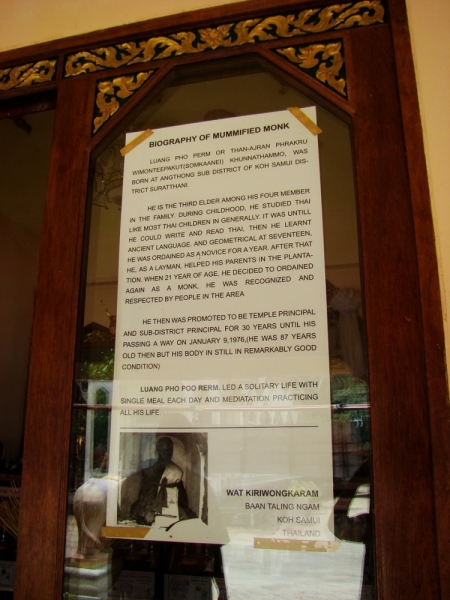 BIOGRAPHY OF MUMMIFIED MONK
LUANG PHO PERM OR THAN-AJRAN PHRAKRU
WIMONTEEPAKUT(SOMKAANEI) KHUNNATHAMMO, WAS
BORN AT ANGTHONG SUB DISTRICT OF KOH SAMUI DIS-
TRICT SURATTHANI.
HE IS THE THIRD ELDER AMONG HIS FOUR MEMBER
IN THE FAMILY. DURING CHILDHOOD, HE STUDIED THAI
LIKE MOST THAI CHILDREN IN GENERALLY. IT WAS UNTILL
HE COULD WRITE AND READ THAI, THEN HE LEARNT
ANCIENT LANGUAGE. AND GEOMETRICAL AT SEVENTEEN,
HE WAS ORDAINED AS A NOVICE FOR A YEAR, AFTER THAT
HE, AS A LAYMAN, HELPED HIS PARENTS IN THE PLANTA-
TION. WHEN 21 YEAR OF AGE, HE DECIDED TO ORDAINED
AGAIN AS A MONK, HE WAS RECOGNIZED AND
RESPECTED BY PEOPLE IN THE AREA
HE THEN WAS PROMOTED TO BE TEMPLE PRINCIPAL
AND SUB-DISTRICT PRINCIPAL FOR 30 YEARS UNTIL HIS
PASSING A WAY ON JANUARY 9,1976,(HE WAS 87 YEARS
OLD THEN BUT HIS BODY IN STILL IN REMARKABLY GOOD
CONDITION)
LUANG PHO POO RERM. LED A SOLITARY LIFE WITH
SINGLE MEAL EACH DAY AND MEDIATATION PRACTICING
ALL HIS LIFE.
WAT KIRIWONGKARAM
BAAN TALING NGAM
KOH SAMUI
THAILAND